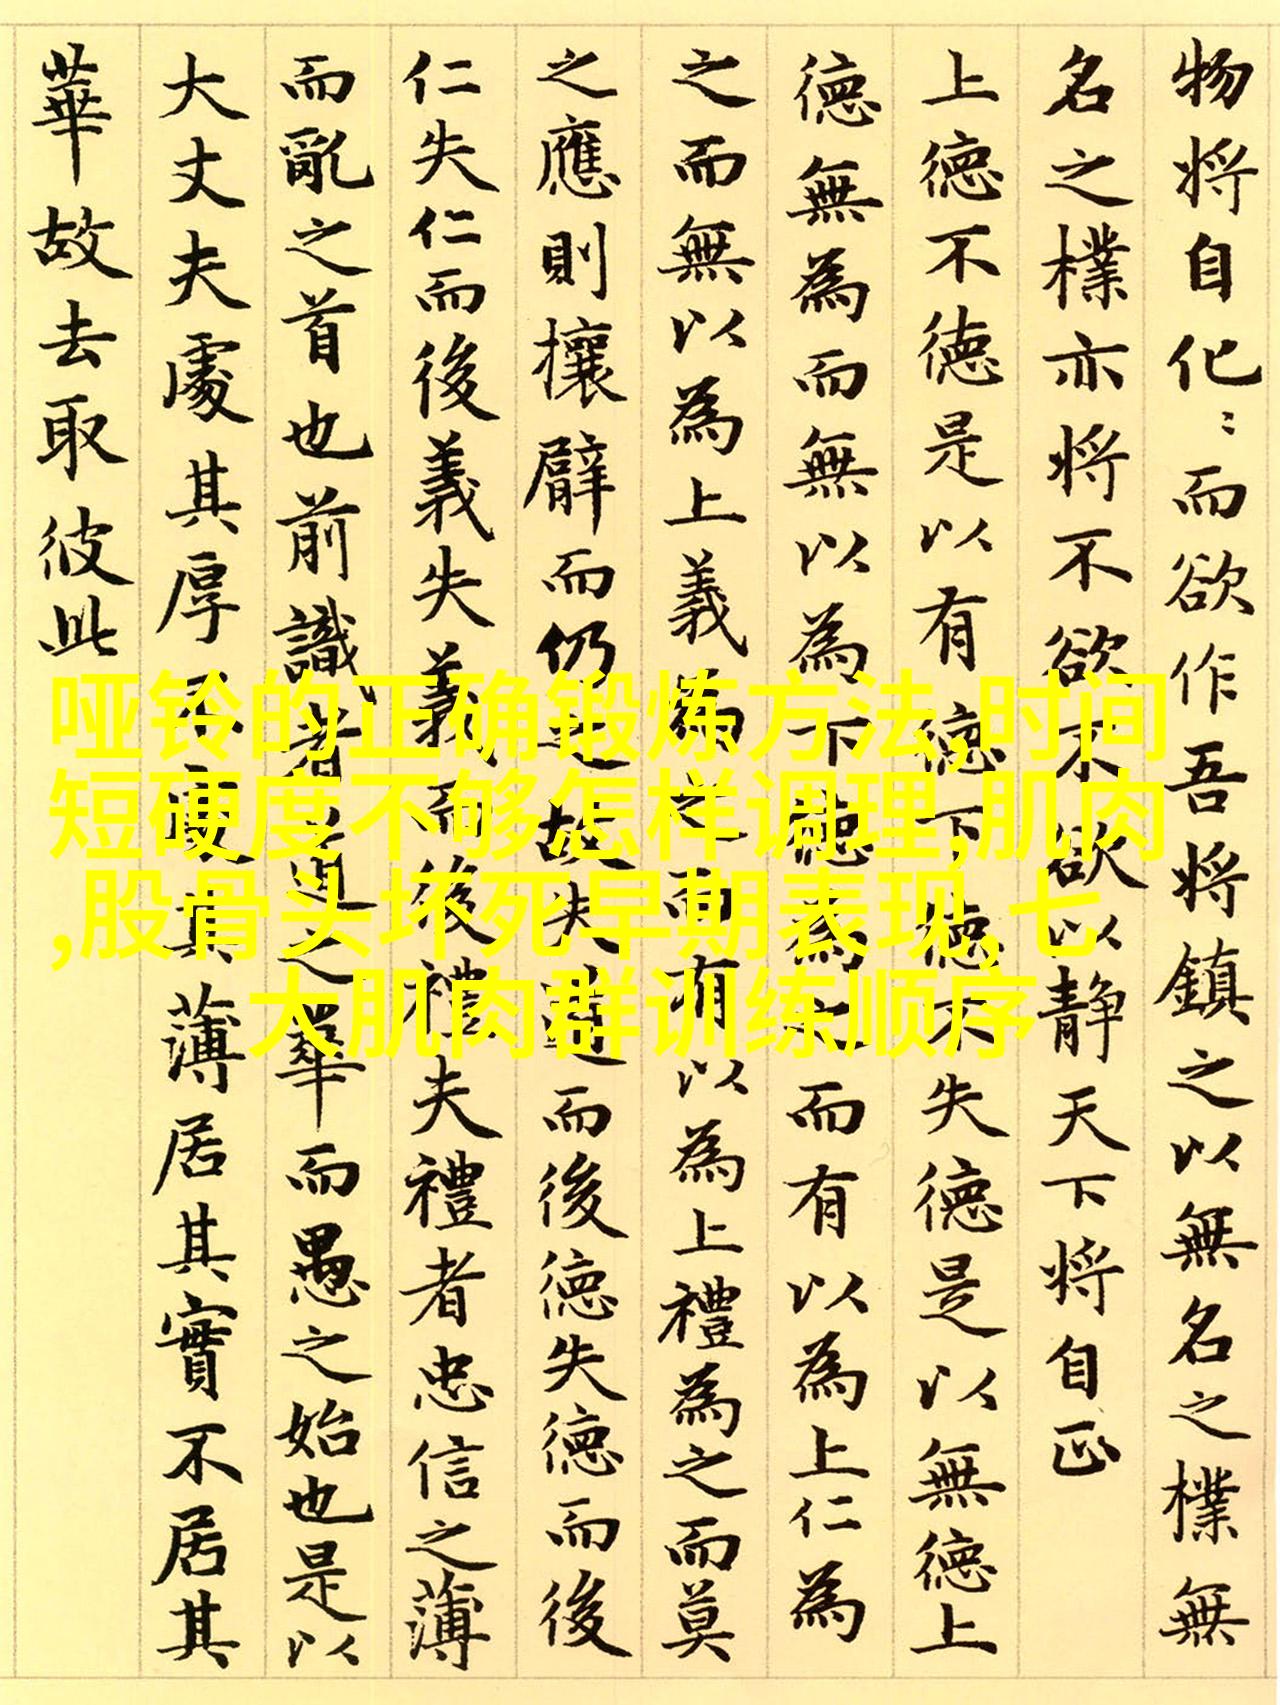 物将自化〻而欲作吾将鎮之以無名之樸無
名之樸亦将不欲不欲以静天下将自正
上徳不徳是以有徳下徳不失徳是以無徳上
徳無為而無以為下徳為之而有以為上仁為
之而無以為上義為之而有以為上禮為之而莫
之應則攘臂而仍之故失道而後徳失徳而後
仁失仁而後義失義而後禮夫禮者忠信之薄
而亂之首也前識者道之華而愚之始也是以
大丈夫處其厚不處其薄居其實不居其
華故去取彼此
哑铃的正确锻炼方法,时间
短硬度不够怎样调理,肌肉
,股骨头坏死早期表现,七
大肌肉群训练顺序